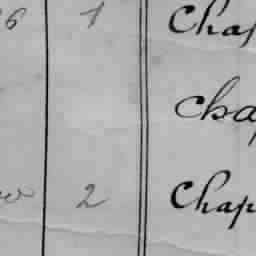 6 1 Chap
Chap
2 Chap